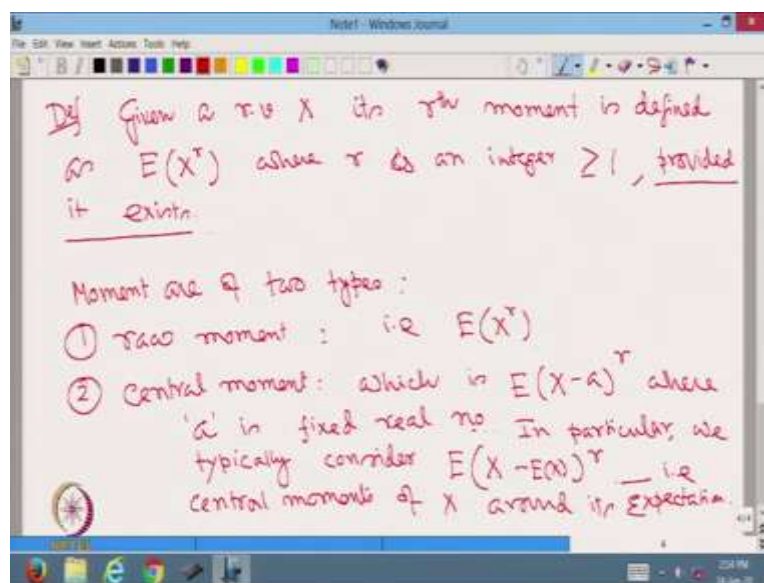 Note1 - Windows Journal
File Edit View Insert Actions Tools Help
Def Given a r.v X its rth moment is defined
as E(X^r) where r is an integer ≥ 1, provided
it exists.
Moment are of two types :
① raw moment : i.e E(X^r)
② Central moment : which is E(X-a)^r where
'a' is fixed real no. In particular, we
typically consider E(X - E(X))^r _ i.e
central moments of X around its Expectation.
NPTEL
2:54 PM